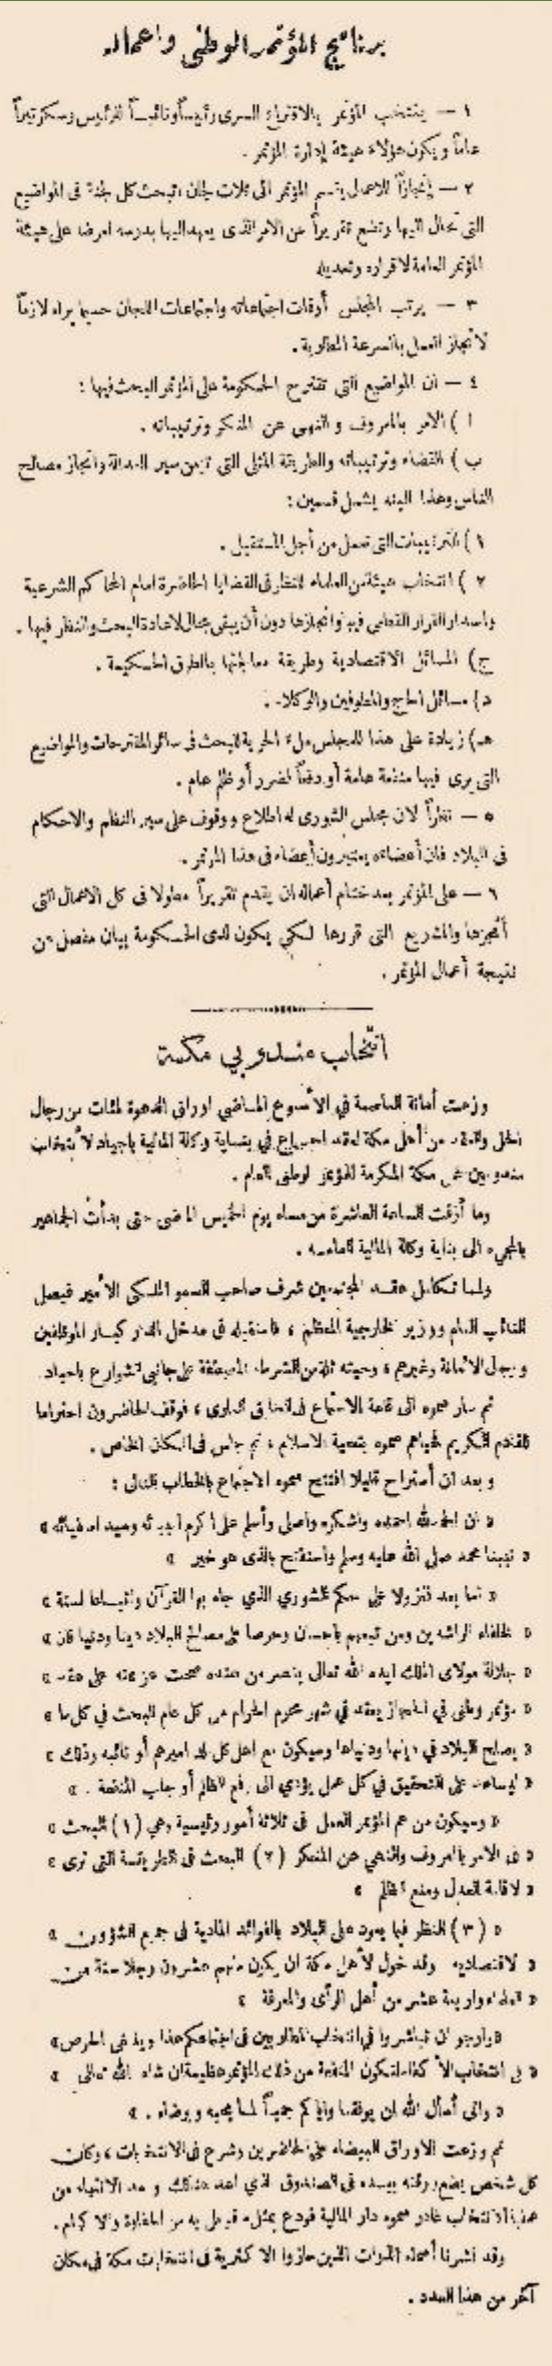 برنامج المؤتمر الوطني واعماله
١ — ينتخب المؤتمر بالاقتراع السرى رئيساً ونائباً للرئيس وسكرتيراً
عاماً ويكون هؤلاء هيئة إدارة المؤتمر .
٢ — إنجازاً للاعمال يقسم المؤتمر الى ثلاث لجان تبحث كل لجنة فى المواضيع
التى تحال اليها وتضع تقريراً عن الامر الذى يعهد اليها بدرسه لعرضه على هيئة
المؤتمر العامة لاقراره وتعديله
٣ — يرتب المجلس أوقات اجتماعاته واجتماعات اللجان حسبما يراه لازماً
لانجاز العمل بالسرعة المطلوبة .
٤ — ان المواضيع التى تقترح الحكومة على المؤتمر البحث فيها :
ا ) الامر بالمعروف والنهى عن المنكر وترتيباته .
ب ) القضاء وترتيباته والطريقة المثلى التى تؤمن سير العدالة وانجاز مصالح
الناس وهذا البند يشمل قسمين :
١ ) الترتيبات التى تعمل من أجل المستقبل .
٢ ) انتخاب هيئة من العلماء للنظر فى القضايا الحاضرة امام المحاكم الشرعية
واصدار القرار القطعى فيها وانجازها دون أن يبقى مجال لاعادة البحث والنظر فيها .
ج) المسائل الاقتصادية وطريقة معالجتها بالطرق الحكيمة .
د) مسائل الحاج والمطوفين والوكلاء .
هـ) زيادة على هذا للمجلس ملء الحرية للبحث فى سائر المقترحات والمواضيع
التى يرى فيها منفعة عامة أو دفعاً لضرر أو ظلم عام .
٥ — نظراً لان مجلس الشورى له اطلاع ووقوف على سير النظام والاحكام
فى البلاد فان أعضاءه يعتبرون أعضاء فى هذا المؤتمر .
٦ — على المؤتمر بعد ختام أعماله ان يقدم تقريراً مطولا فى كل الاعمال التى
أنجزها والمشاريع التى قررها لكي يكون لدى الحكومة بيان مفصل عن
نتيجة أعمال المؤتمر .
انتخاب مندوبي مكة
وزعت أمانة العاصمة في الأسبوع الماضي اوراق الدعوة لمئات من رجال
الحل والعقد من أهل مكة لعقد اجتماع في بناية وكالة المالية باجياد لانتخاب
مندوبين عن مكة المكرمة للمؤتمر الوطنى العام .
وما أزفت الساعة العاشرة من مساء يوم الخميس الماضى حتى بدأت الجماهير
بالمجيء الى بناية وكالة المالية العامة .
ولما تكامل عقد المجتمعين شرف صاحب السمو الملكى الأمير فيصل
النائب العام ووزير الخارجية المعظم ، فاستقبله فى مدخل الدار كبار الموظفين
ورجال الامانة وغيرهم ، وحيته ثلة من الشرطة المصطفة على جانبى الشوارع باجياد .
ثم سار سموه الى قاعة الاجتماع فى الطابق العلوى ، فوقف الحاضرون احتراما
للقادم الكريم فحياهم سموه بتحية الاسلام ، ثم جلس فى المكان الخاص .
وبعد ان أستراح قليلا افتتح سموه الاجتماع بالخطاب التالى :
« ان الحمد لله احمده واشكره واصلى وأسلم على أكرم أنبيائه وسيد اصفيائه »
« نبينا محمد صلى الله عليه وسلم واستفتح بالذى هو خير »
« اما بعد فنزولا على حكم الشورى الذي جاء بها القرآن واتباعا لسنة »
« الخلفاء الراشدين ومن تبعهم باحسان وحرصا على مصالح البلاد دينا ودنيا فان »
« جلالة مولاى الملك ايده الله تعالى بنصر من عنده صحت عزيمته على عقد »
« مؤتمر وطنى في الحجاز يعقد في شهر محرم الحرام من كل عام للبحث في كل ما »
« يصلح البلاد في دينها ودنياها وسيكون مع اهل كل بلد اميرهم أو نائبه وذلك »
« ليساعد على التحقيق في كل عمل يؤدي الى رفع الظلم أو جلب المنفعة . »
« وسيكون من هم المؤتمر العمل فى ثلاثة أمور رئيسية وهي (١) البحث »
« فى الامر بالمعروف والنهي عن المنكر (٢) البحث فى الطريقة التى ترى »
« لاقامة العدل ومنع الظلم »
« (٣) النظر فيما يعود على البلاد بالفوائد المادية فى جميع الشؤون »
« الاقتصادية وقد خول لأهل مكة ان يكون منهم عشرون رجلا ستة من »
« العلماء واربعة عشر من أهل الرأى والمعرفة »
« وارجو ان تباشروا في انتخاب المطلوبين فى اجتماعكم هذا وينبغى الحرص »
« فى انتخاب الأكفاء لتكون المنفعة من ذلك المؤتمر عظيمة ان شاء الله تعالى »
« وانى أسأل الله ان يوفقنا واياكم جميعاً لما يحبه ويرضاه . »
ثم وزعت الاوراق البيضاء على الحاضرين وشرع فى الانتخابات ، وكان
كل شخص يضع ورقته بيده فى الصندوق الذي اعد هنالك وبعد الانتهاء من
عملية الانتخاب غادر سموه دار المالية فودع بمثل ما قوبل به من الحفاوة والاكرام .
وقد نشرنا أسماء الذوات الذين حازوا الاكثرية فى انتخابات مكة فى مكان
آخر من هذا العدد .